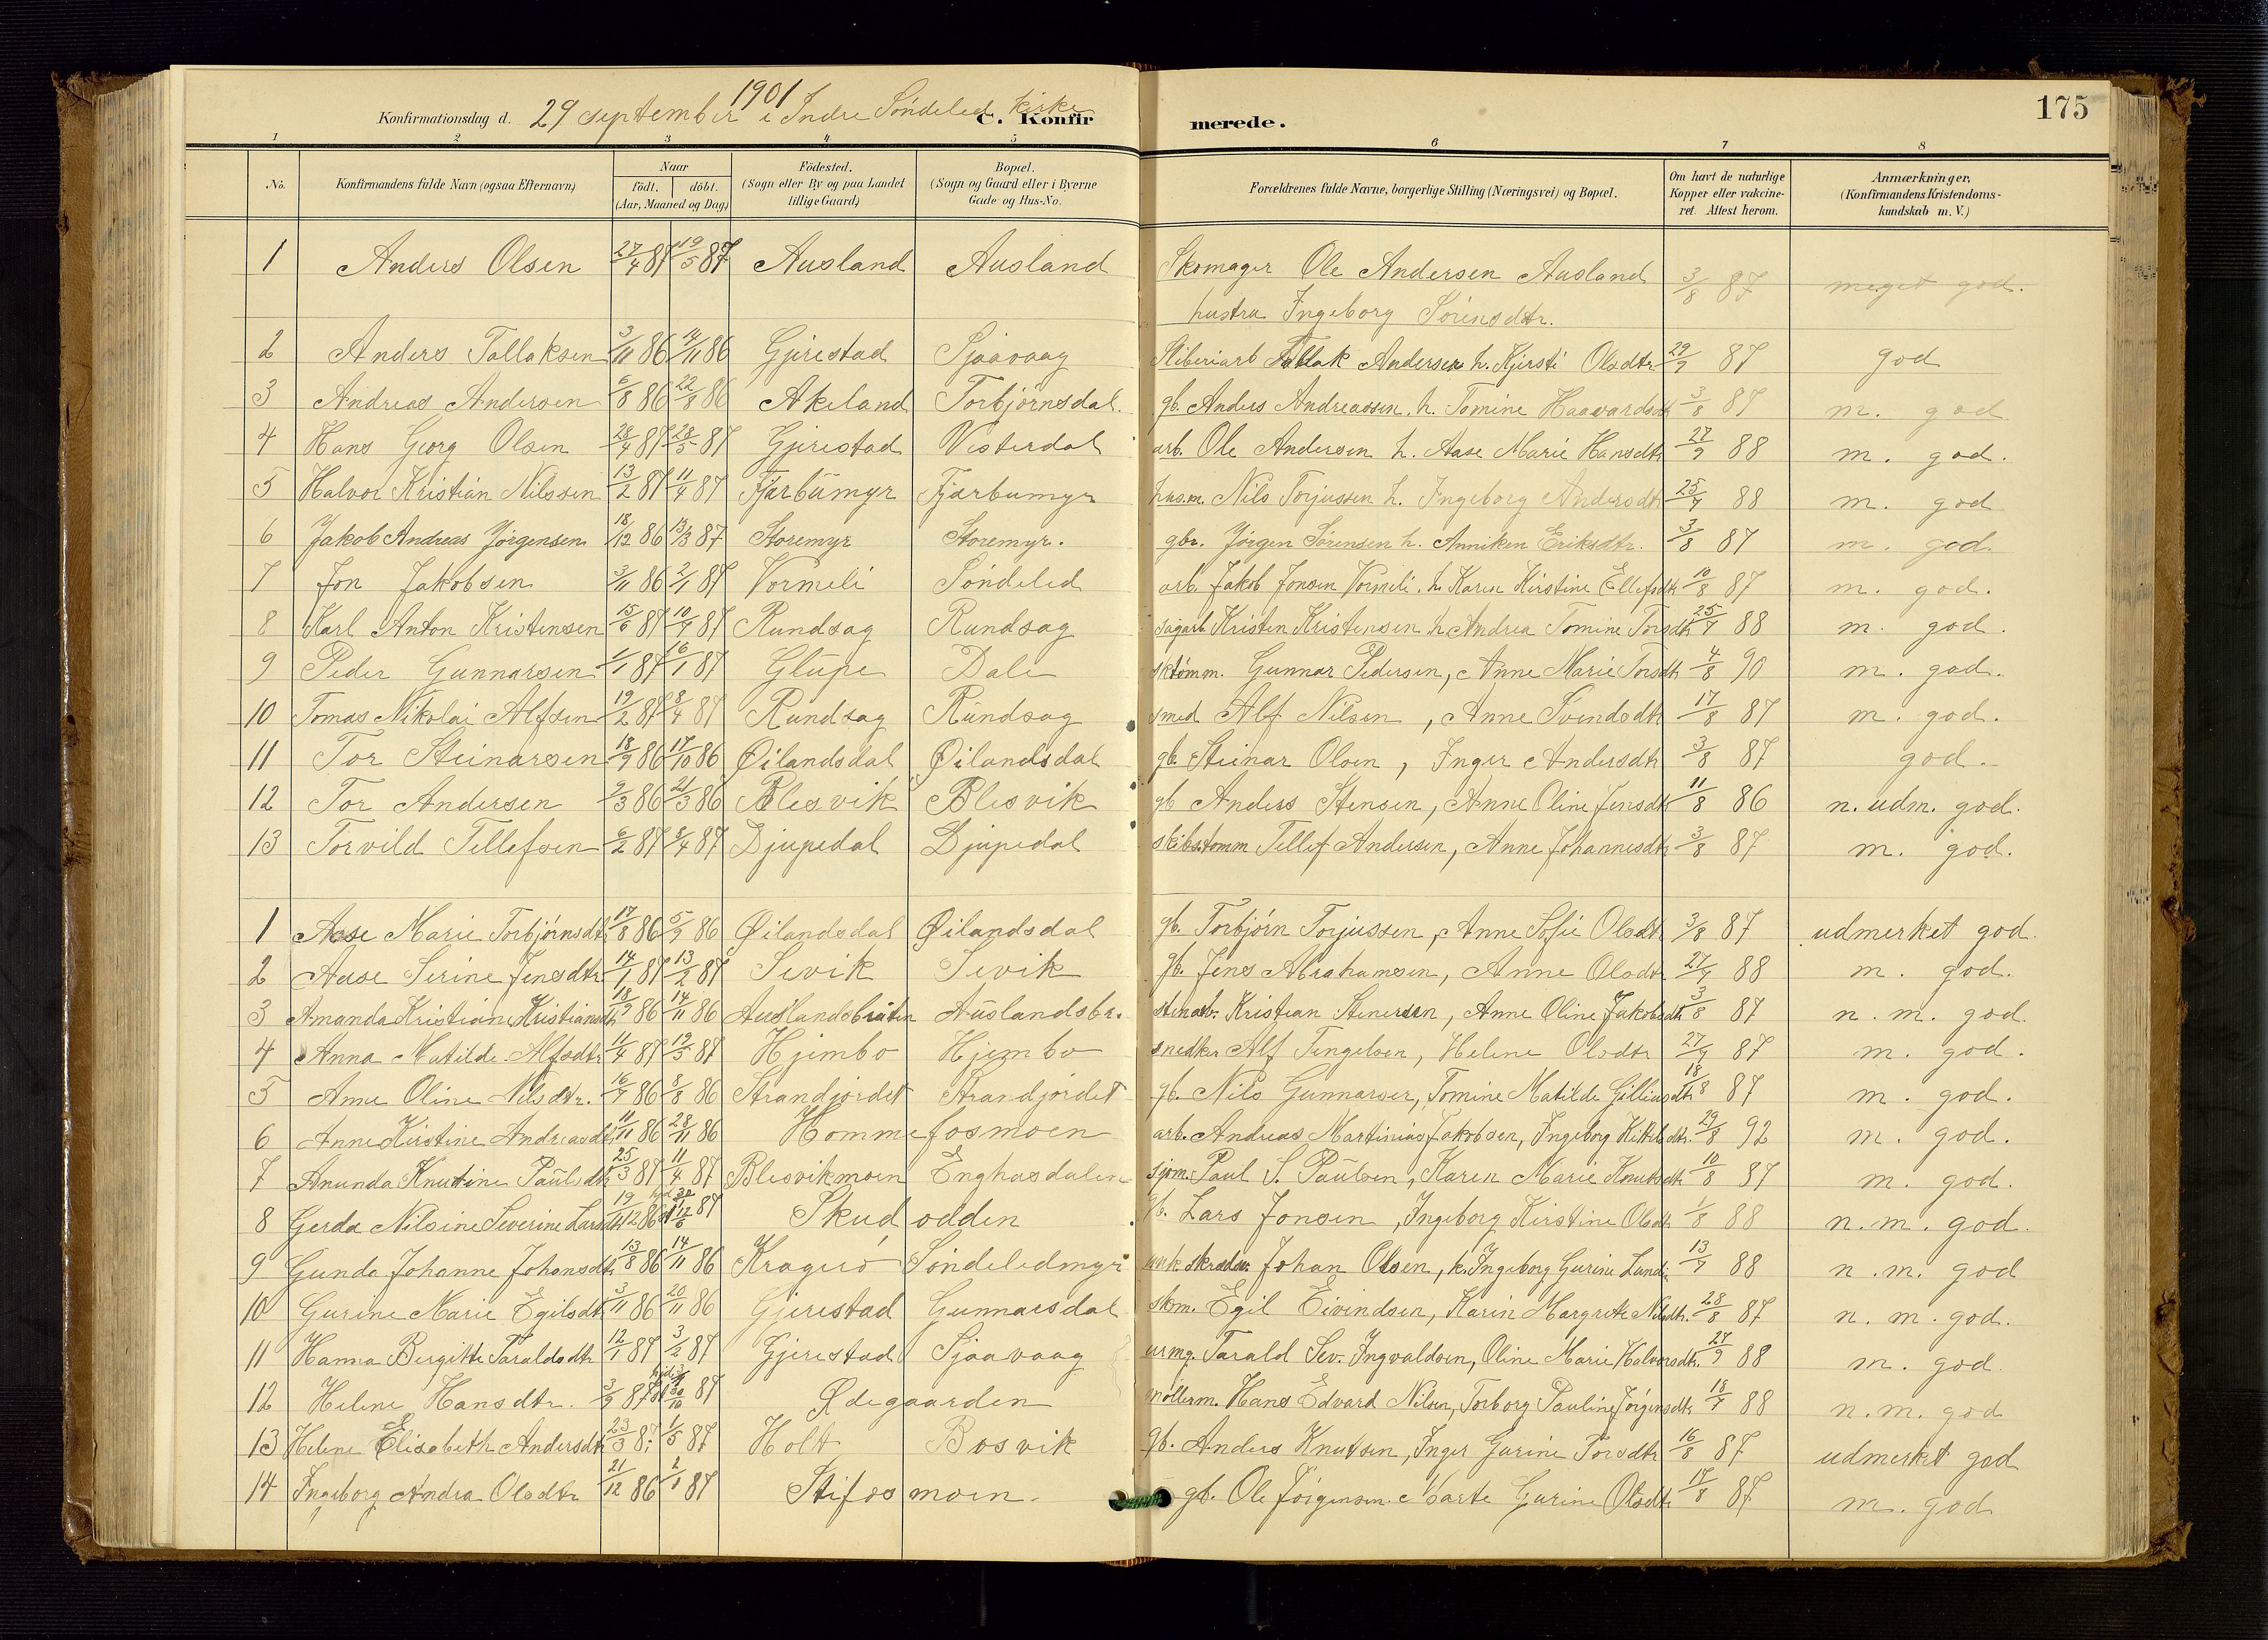 175
1901
Konfirmationsdag d. 29 september i Indre Söndeled kirke C. Konfirmerede.
1 2 3 4 5 6 7 8
No. Konfirmandens fulde Navn (ogsaa Efternavn) Naar födt. döbt. (Aar, Maaned og Dag) Födested. (Sogn eller By og paa Landet tillige Gaard) Bopæl. (Sogn og Gaard eller i Byerne Gade og Hus-No. Forældrenes fulde Navne, borgerlige Stilling (Næringsvei) og Bopæl. Om havt de naturlige Kopper eller vakcineret. Attest herom. Anmærkninger, (Konfirmandens Kristendomskundskab m. V.)
1 Anders Olsen 27/4 87 19/5 87 Ausland Ausland Skomager Ole Andersen Ausland 3/8 87 meget god.
hustru Ingeborg Sörensdtr.
2 Anders Tallaksen 3/11 86 14/11 86 Gjerestad Sjaavaag Tallak Andersen h. Kjersti Olsdtr 29/9 87 god
3 Andreas Andersen 6/8 86 22/8 86 Akeland Torbjörnsdal. gb. Anders Andreassen. h. Tomine Haavardsdtr 3/8 87 m. god
4 Hans Georg Olsen 28/4 87 28/5 87 Gjerestad Vesterdal arb. Ole Andersen h. Aase Marie Hansdtr 27/9 88 m. god.
5 Halvor Kristian Nilssen 13/2 87 11/4 87 Tjærbumyr Tjærbumyr husm. Nils Torjussen h. Ingeborg Andersdtr 25/7 88 m. god
6 Jakob Andreas Jörgensen 18/12 86 13/3 87 Storemyr Storemyr. gbr. Jörgen Sörensen h. Anniken Eriksdtr. 3/8 87 m. god.
7 Jon Jakobsen 3/11 86 2/1 87 Vormeli Söndeled arb. Jakob Jonsen Vormeli. h. Karen Kirstine Ellefsdtr 10/8 87 m. god.
8 Karl Anton Kristensen 15/6 87 10/7 87 Rundsag Rundsag sagarb. Kristen Kristensen h. Andrea Tomine Torsdtr 25/7 88 m. god.
9 Peder Gunnarsen 1/1 87 16/1 87 Glupe Dale sktömm. Gunnar Pedersen, Anne Marie Torsdtr 4/8 90 m. god.
10 Tomas Nikolai Alfsen 19/2 87 8/4 87 Rundsag Rundsag smed Alf Nilsen, Anne Svendsdtr 17/8 87 m. god.
11 Tor Steinarsen 18/9 86 17/10 86 Øilandsdal Øilandsdal gb. Steinar Olsen, Inger Andersdtr 3/8 87 god.
12 Tor Andersen 9/3 86 21/3 86 Blesvik Blesvik gb Anders Stensen, Anne Oline Jensdtr 11/8 86 n. udm. god.
13 Torvild Tellefsen 6/2 87 8/4 87 Djupedal Djupedal skibstømm Tellef Andersen, Anne Johannesdtr 3/8 87 m. god.
1 Aase Marie Torbjörnsdtr 17/8 86 5/9 86 Øilandsdal Øilandsdal gb. Torbjörn Torjussen, Anne Sofie Olsdtr 3/8 87 udmerket god.
2 Aase Serine Jensdtr 14/1 87 13/2 87 Sevik Sevik gb. Jens Abrahamsen, Anne Olsdtr 27/7 88 m. god.
3 Amanda Kristiane Kristiansdtr 18/9 86 14/11 86 Auslandsbråten Auslandsbr. stenarb. Kristian Stenersen, Anne Oline Jakobsdtr 3/8 87 n. m. god.
4 Anna Matilde Alfsdtr 11/4 87 19/5 87 Hjembo Hjembo snedker Alf Tengelsen, Helene Olsdtr 27/7 87 m. god.
5 Anne Oline Nilsdtr. 16/7 86 8/8 86 Strandjordet Strandjordet gb. Nils Gunnarsen, Tomine Matilde Gilliusdtr 18/8 87 m. god.
6 Anne Kirstine Andreasdtr 11/11 86 28/11 86 Hommefosmoen arb. Andreas Martinius Jakobsen, Ingeborg Kittelsdtr. 29/8 92 m. god.
7 Anunda Knutine Paulsdtr 25/3 87 11/4 87 Blesvikmoen Enghasdalen sjøm. Paul S. Paulsen, Karen Marie Knutsdtr 10/8 87 m. god.
8 Gerda Nilsine Severine Larsdtr 19/12 86 12/6 87 Skudodden gb. Lars Jonsen, Ingeborg Kirstine Olsdtr 1/8 88 n. m. god.
9 Gunda Johanne Johansdtr 13/8 86 14/11 86 Kragerö Söndeledmyr skrædder Johan Olsen, Ingeborg Gurine 13/7 88 n. m. god
10 Gurine Marie Egilsdtr 3/11 86 20/11 86 Gjerestad Gunnarsdal skm. Egil Eivindsen, Karen Margrete Nilsdtr. 28/8 87 n. m. god.
11 Hanna Bergitte Taraldsdtr 12/1 87 3/2 87 Gjerestad Sjaavaag urmg. Tarald Sev. Ingvaldsen, Oline Marie Halvorsdtr. 27/9 88 m. god.
12 Helene Hansdtr. 3/9 87 30/10 87 Ødegaarden möllerm. Hans Edvard Nilsen, Torborg Pauline Jörgensdtr 18/7 88 n. m. god
13 Helene Elisabeth Andersdtr 23/3 87 1/5 87 Holt Bosvik gb. Anders Knutsen, Inger Gurine Torsdtr 16/8 87 udmerket god
14 Ingeborg Andrea Olsdtr 21/12 86 2/1 87 Stifosmoen. gb. Ole Jörgensen. Marte Gurine Olsdtr 17/8 87 m. god